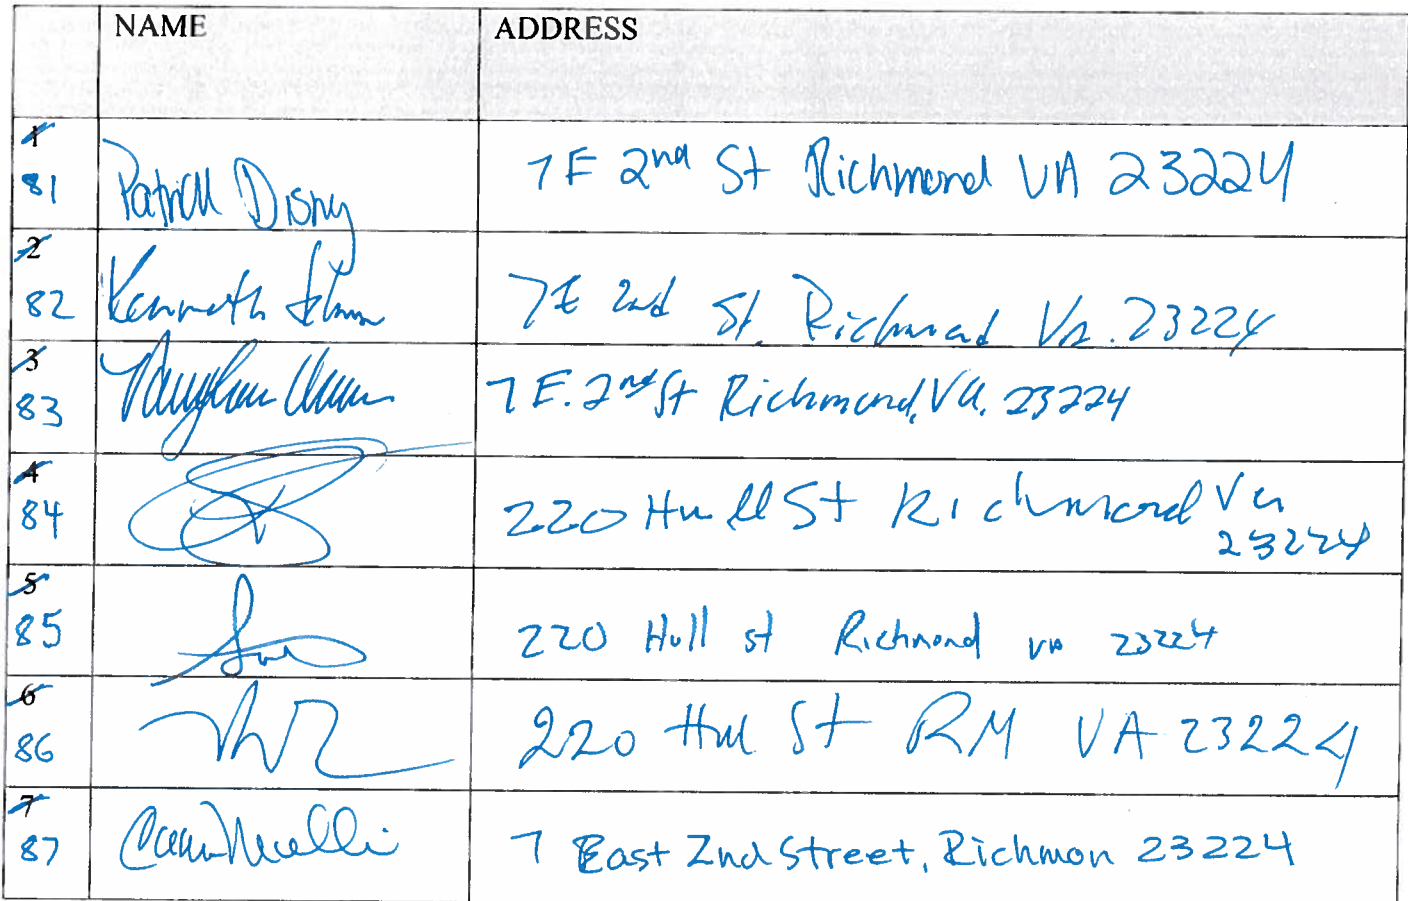 NAME ADDRESS
1
81 Patrick Disny 7 E 2nd St Richmond VA 23224
2
82 Kenneth 7E 2nd St. Richmond Va. 23224
3
83 Vaughan 7 E. 2nd St Richmond, Va. 23224
4
84 220 Hull St Richmond Va
23224
5
85 220 Hull st Richmond va 23224
6
86 220 Hul St RM VA 23224
7
87 7 East 2nd Street, Richmon 23224